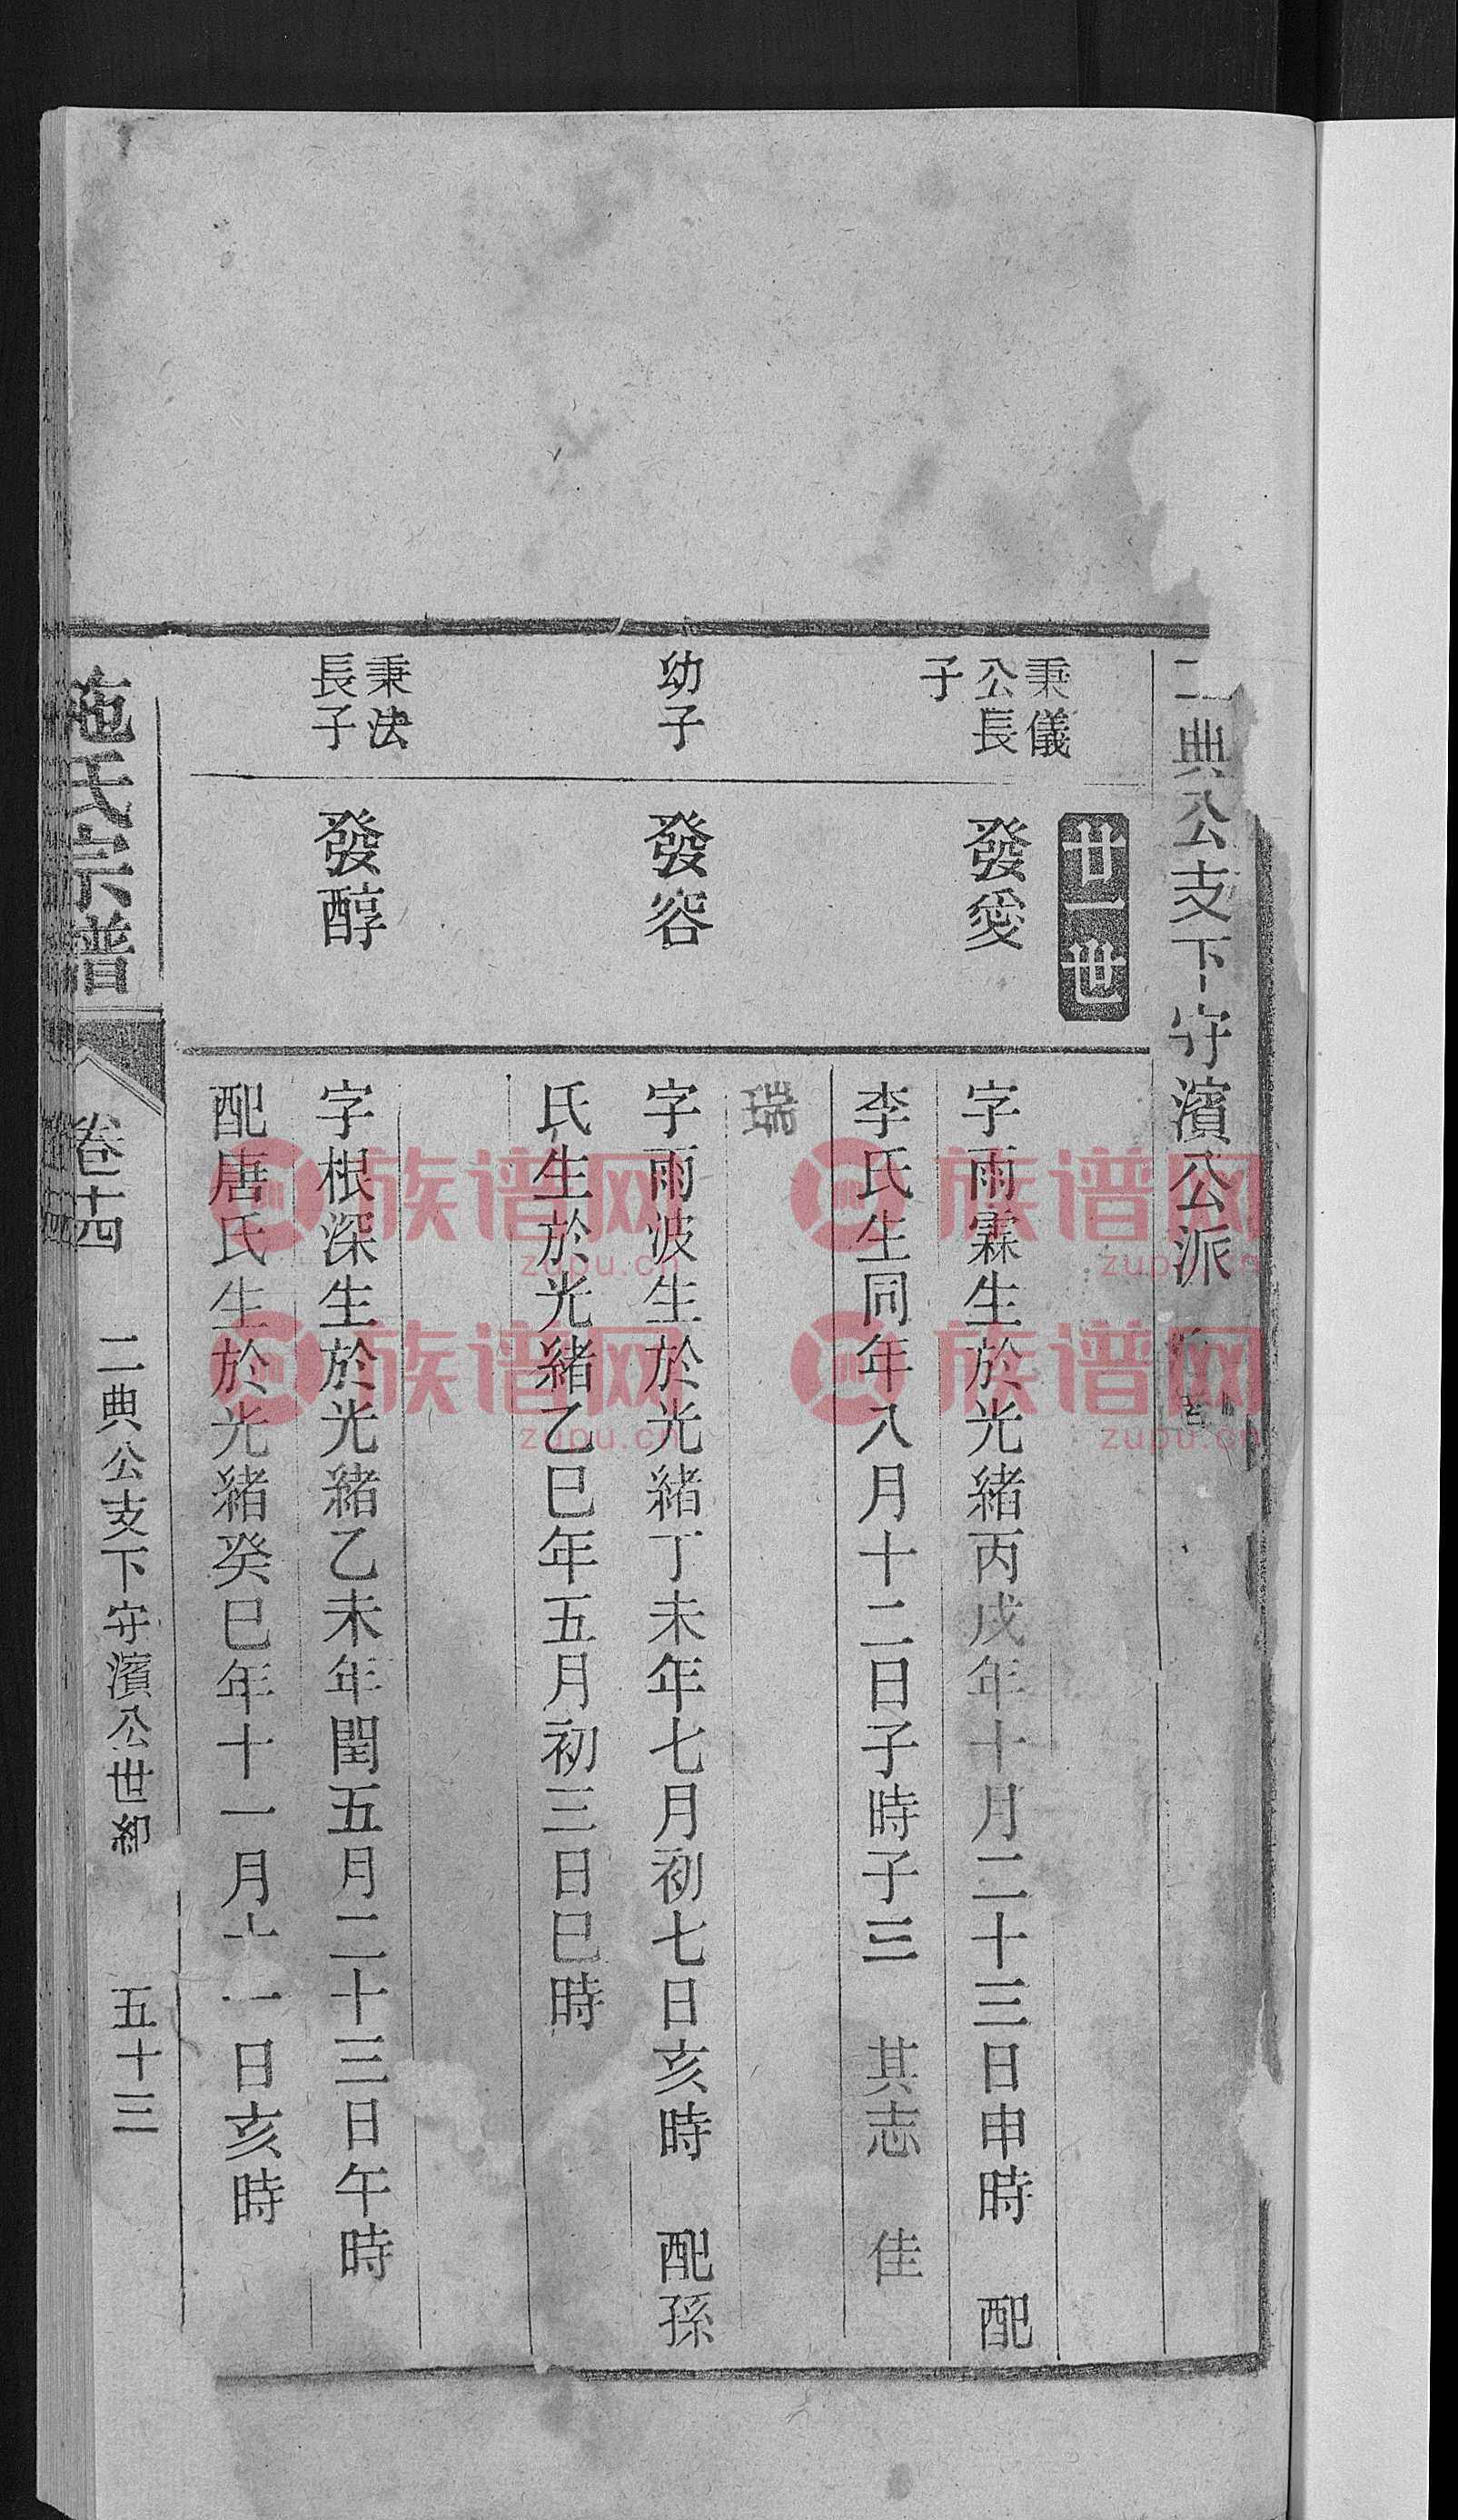 二典公支下守濱公派
廿一世
秉儀
公長
子
發愛
字雨霖生於光緒丙戌年十月二十三日申時 配
李氏生同年八月十二日子時子三 其志 佳
瑞
幼子
發容
字雨波生於光緒丁未年七月初七日亥時 配孫
氏生於光緒乙巳年五月初三日巳時
秉法
長子
發醇
字根深生於光緒乙未年閏五月二十三日午時
配唐氏生於光緒癸巳年十一月十一日亥時
施氏宗譜 卷十四 二典公支下守濱公世紀 五十三
族谱网
zupu.cn
族谱网
zupu.cn
族谱网
zupu.cn
族谱网
zupu.cn